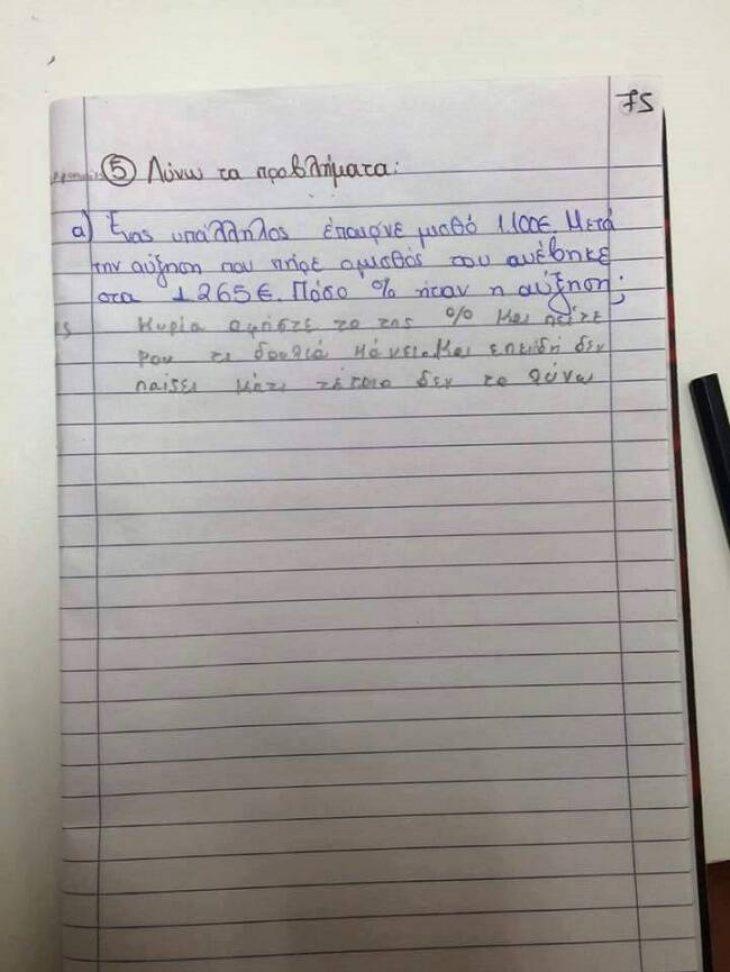 75
⑤ Λύνω τα προβλήματα:
α) Ένας υπάλληλος έπαιρνε μισθό 1.100€. Μετά
την αύξηση που πήρε ο μισθός του ανέβηκε
στα 1265€. Πόσο % ήταν η αύξηση;
Κυρία αφήστε το της % και πείτε
μου τι δουλιά κάνει. Και επειδή δεν
παίσει κάτι τέτοιο δεν το λύνω